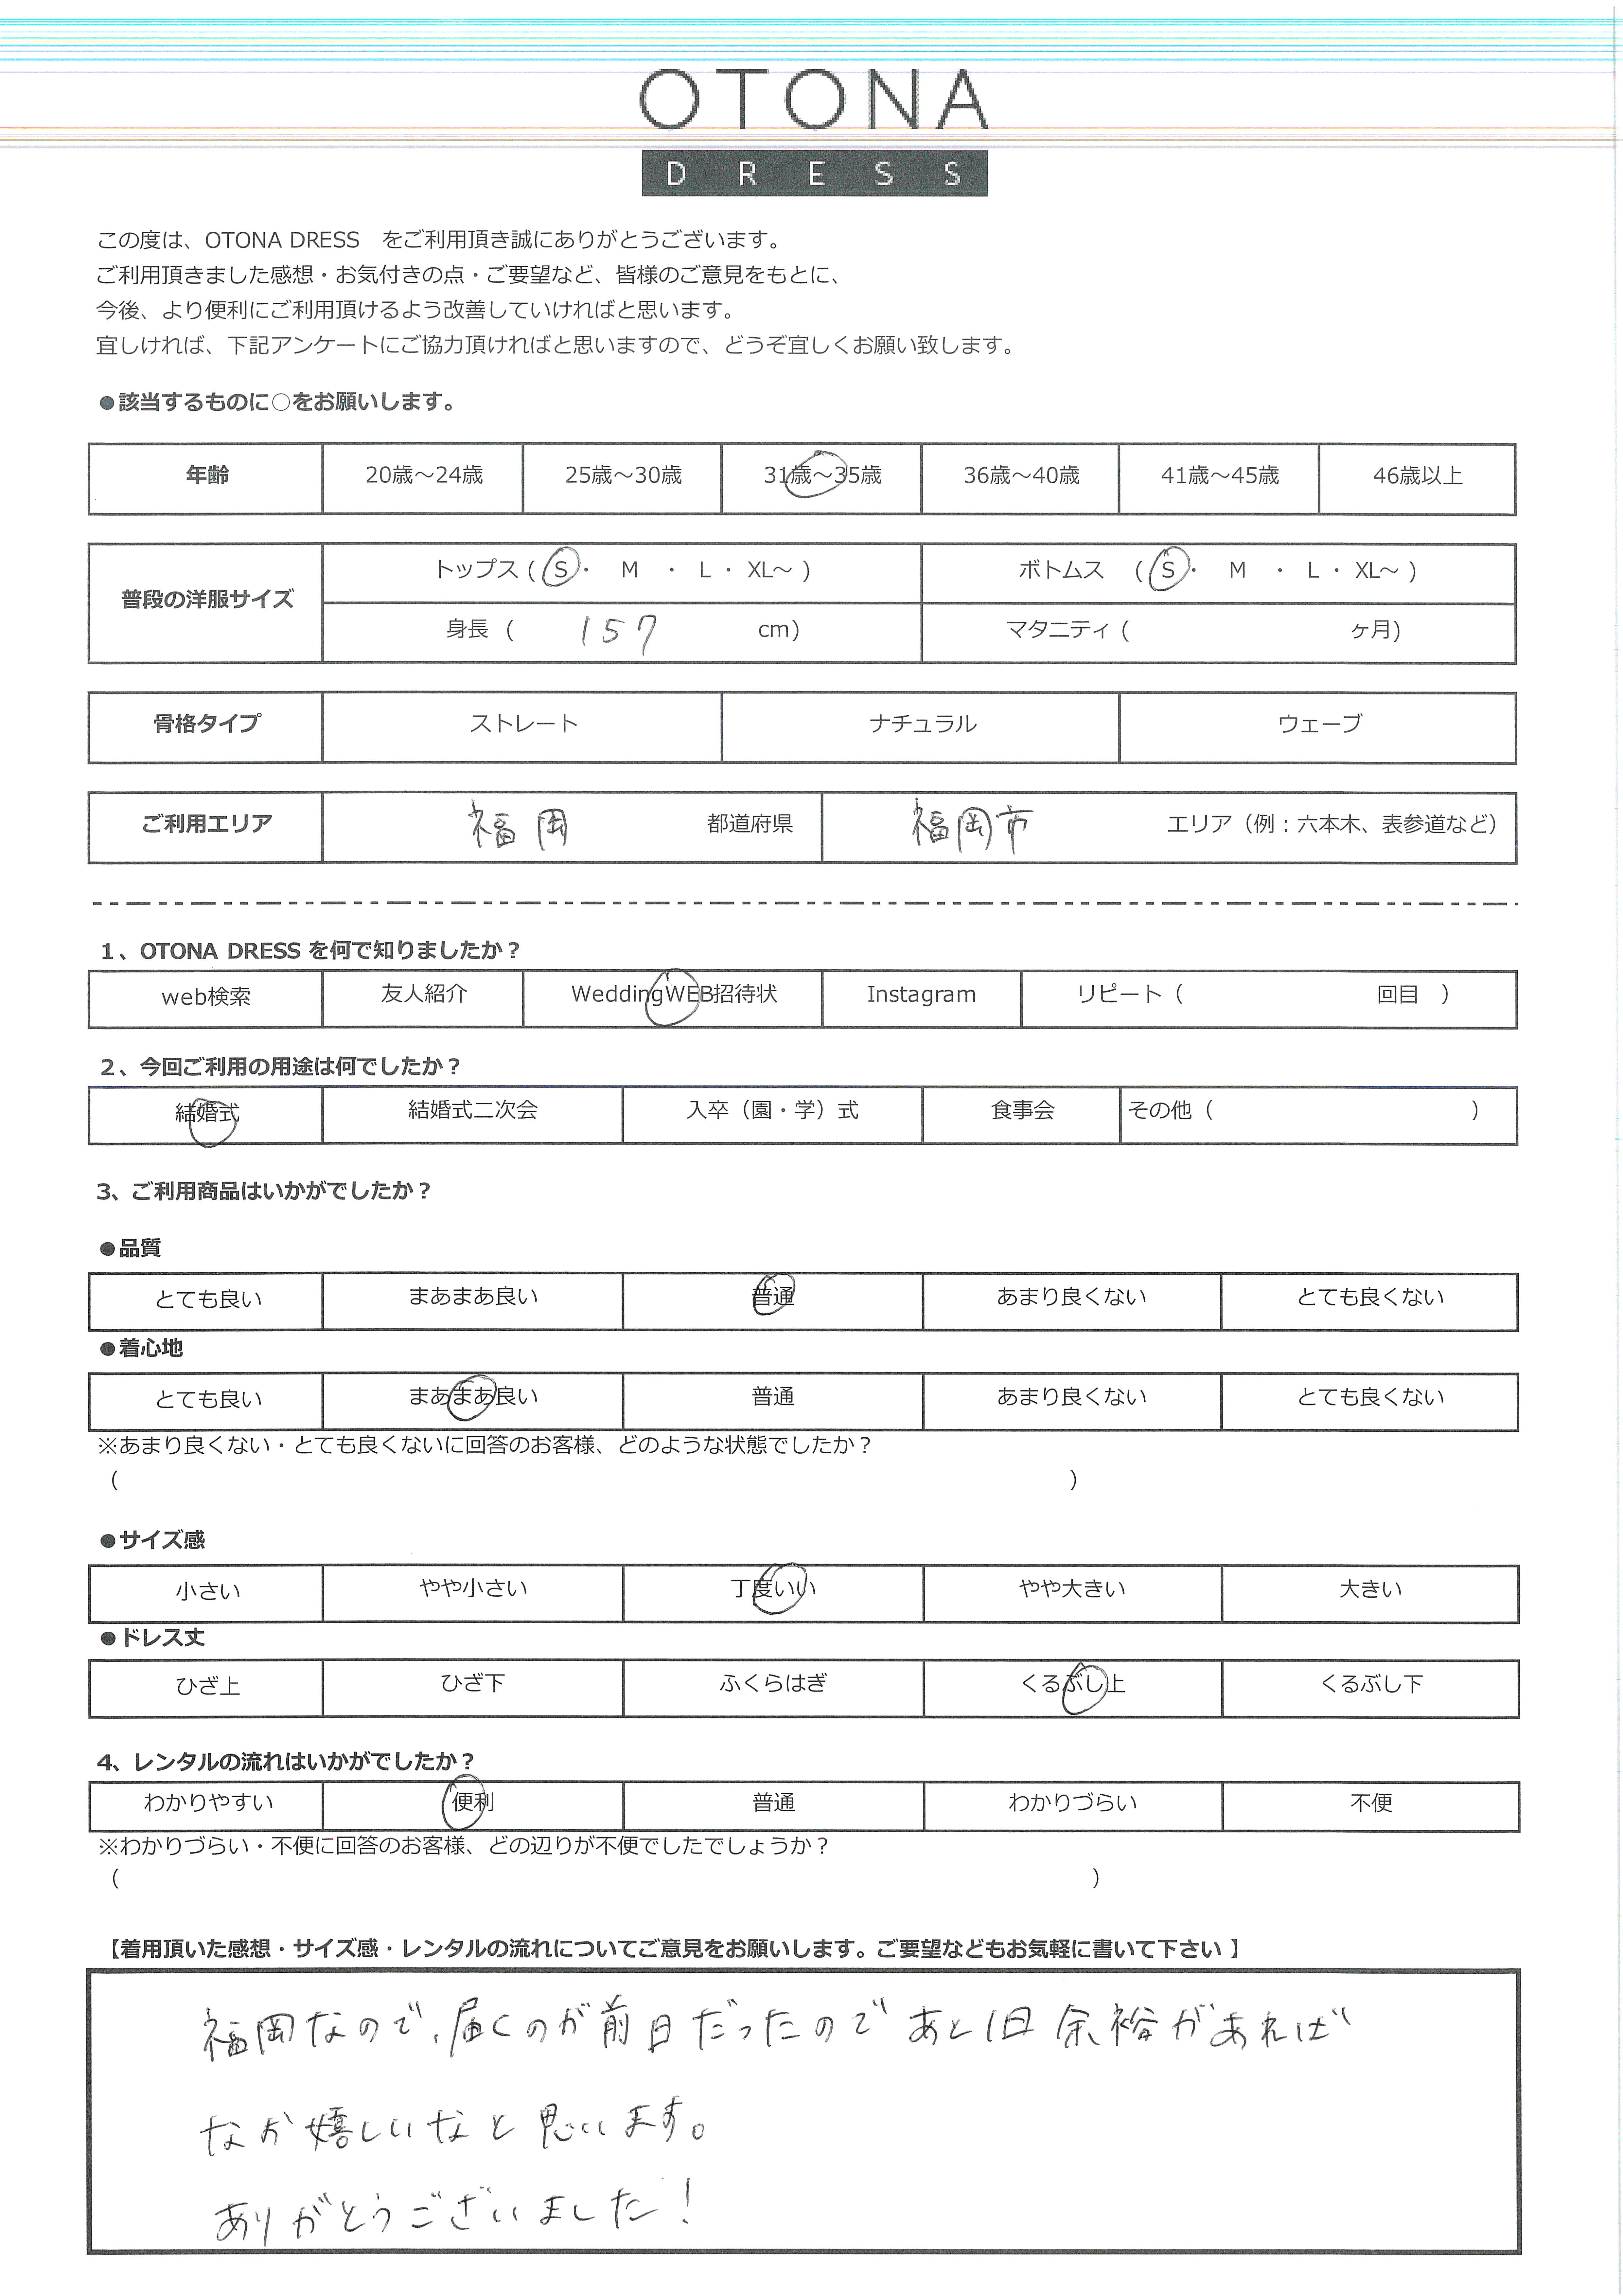 OTONA
DRESS
この度は、OTONA DRESS をご利用頂き誠にありがとうございます。
ご利用頂きました感想・お気付きの点・ご要望など、皆様のご意見をもとに、
今後、より便利にご利用頂けるよう改善していければと思います。
宜しければ、下記アンケートにご協力頂ければと思いますので、どうぞ宜しくお願い致します。
●該当するものに○をお願いします。
年齢 20歳～24歳 25歳～30歳 31歳～35歳 36歳～40歳 41歳～45歳 46歳以上
普段の洋服サイズ トップス ( S ・ M ・ L ・ XL～ ) ボトムス ( S ・ M ・ L ・ XL～ )
身長 ( 157 cm) マタニティ ( ヶ月)
骨格タイプ ストレート ナチュラル ウェーブ
ご利用エリア 福岡 都道府県 福岡市 エリア（例：六本木、表参道など）
1、OTONA DRESS を何で知りましたか？
web検索 友人紹介 WeddingWEB招待状 Instagram リピート（ 回目 ）
2、今回ご利用の用途は何でしたか？
結婚式 結婚式二次会 入卒（園・学）式 食事会 その他（ ）
3、ご利用商品はいかがでしたか？
●品質
とても良い まあまあ良い 普通 あまり良くない とても良くない
●着心地
とても良い まあまあ良い 普通 あまり良くない とても良くない
※あまり良くない・とても良くないに回答のお客様、どのような状態でしたか？
（ ）
●サイズ感
小さい やや小さい 丁度いい やや大きい 大きい
●ドレス丈
ひざ上 ひざ下 ふくらはぎ くるぶし上 くるぶし下
4、レンタルの流れはいかがでしたか？
わかりやすい 便利 普通 わかりづらい 不便
※わかりづらい・不便に回答のお客様、どの辺りが不便でしたでしょうか？
（ ）
【着用頂いた感想・サイズ感・レンタルの流れについてご意見をお願いします。ご要望などもお気軽に書いて下さい 】
福岡なので、届くのが前日だったのであと1日余裕があれば
なお嬉しいなと思います。
ありがとうございました！